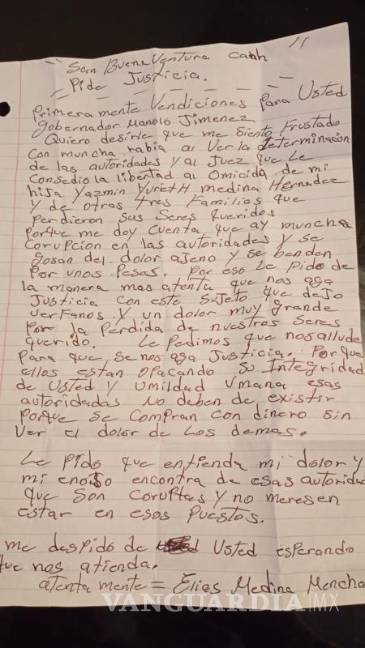 San BuenaVentura Cahh
Pide Justicia.
Primeramente Vendiciones para Usted
gobernador Manolo Jimenez
Quiero desirle que me siento Frustado
Con muncha rabia al Ver la determinación
de las autoridades y al Juez que Le
Consedio la libertad al Omicida de mi
hija Yazmin Yurieth medina Hernadez
Y de otras tres Familias que
perdieron sus Seres queridos
Porque me doy Cuenta que ay muncha
Corupcion en las autoridades y se
gosan del dolor ajeno y se benden
Por unos pesas. Por eso Le pido de
la manera mas atenta que nos aga
Justicia Con este Sujeto que dejo
uerfanos y un dolor muy grande
Por la perdida de nuestros seres
querido. Le Pedimos que nos allude
Para que se nos aga Justicia. Porque
ellos estan opacando su Integridad
de Usted y Umildad Umana esas
autoridades No deben de existir
Porque se compran con dinero sin
Ver el dolor de Los demas.
Le pido que entienda mi dolor y
mi enojo encontra de esas autoridad
que son coruptas y no meresen
estar en esos puestos.
me despido de Usted esperando
que nos atienda.
atentamente = Elias Medina Menchaca
VANGUARDIA MX